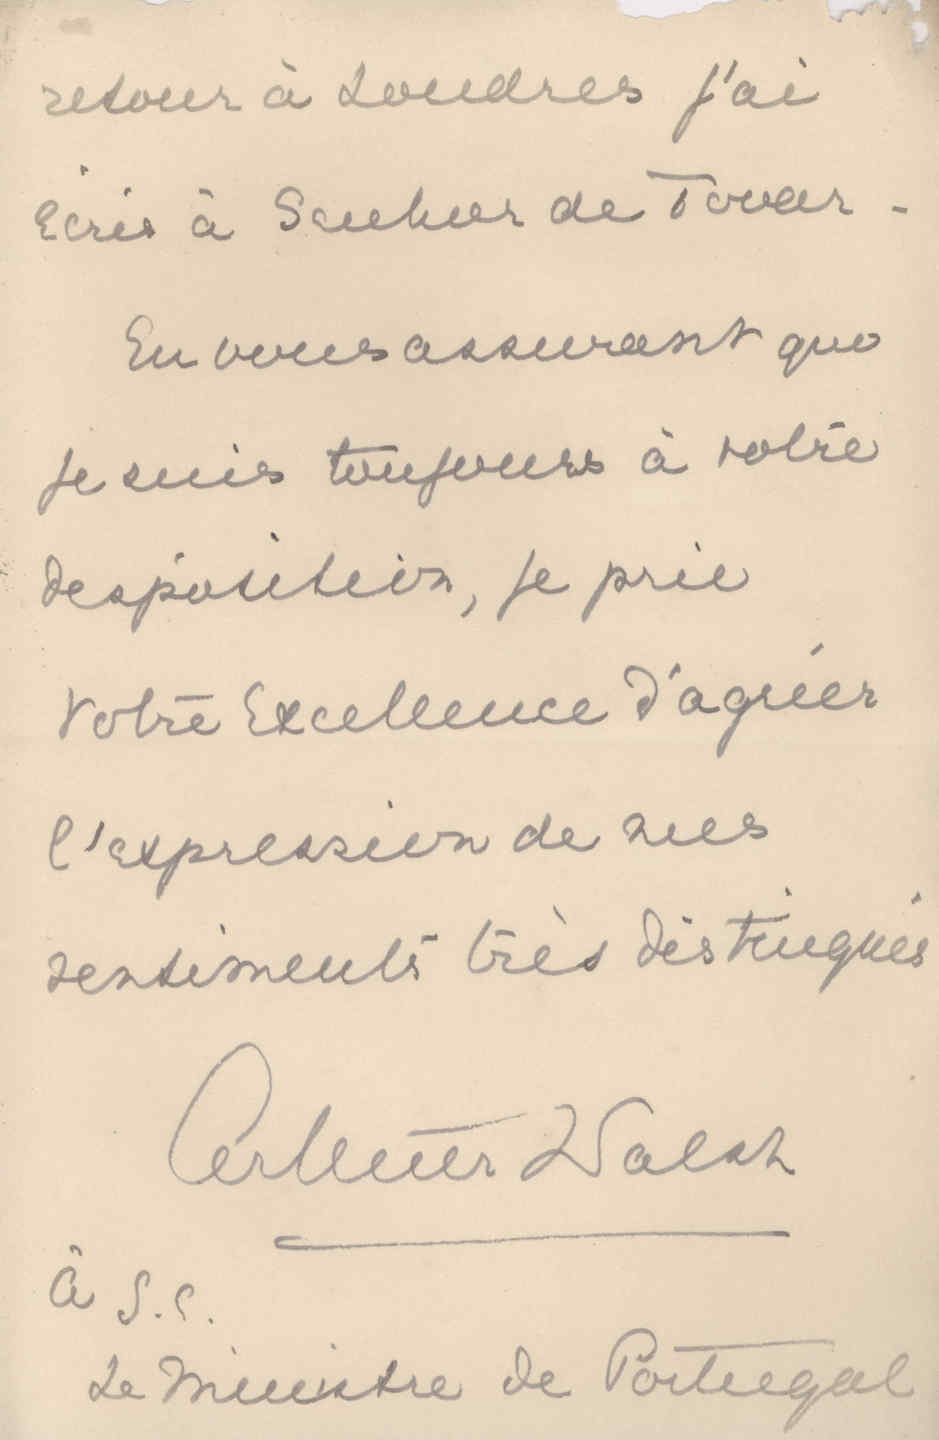 retour à Londres j'ai
écris à Senhor de Tovar -
En vous assurant que
je suis toujours à votre
desposition, je prie
Votre Excellence d'agréer
l'expression de mes
sentiments très distingués
Walsh
À S.E.
Le Ministre de Portugal